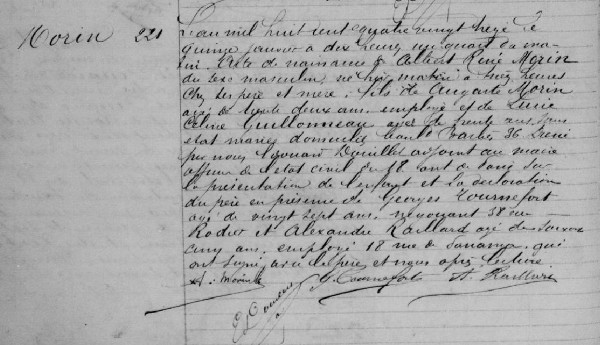 Morin 221
L'an mil huit cent quatre vingt treize le
quinze janvier a dix heures un quart du ma-
tin. Acte de naissance de Albert René Morin
du sexe masculin, né hier matin à heures
chez ses père et mère ; fils de Auguste Morin
agé de trente deux ans, employé et de Lucie
Céline Guillonneau agée de trente ans, sans
état mariés domiciliés 36. Dressé
par nous Edouard adjoint au maire
officier de l'état civil du 18 art de Paris sur
la présentation de l'enfant et la déclaration
du père en présence de Georges Tournefort
agé de vingt sept ans, 58 rue
Rodier et Alexandre Raillard agé de soixante
cinq ans, employé 18 rue de Panama, qui
ont signé avec le père et nous après lecture
A. Morin G. Tournefort A. Raillard